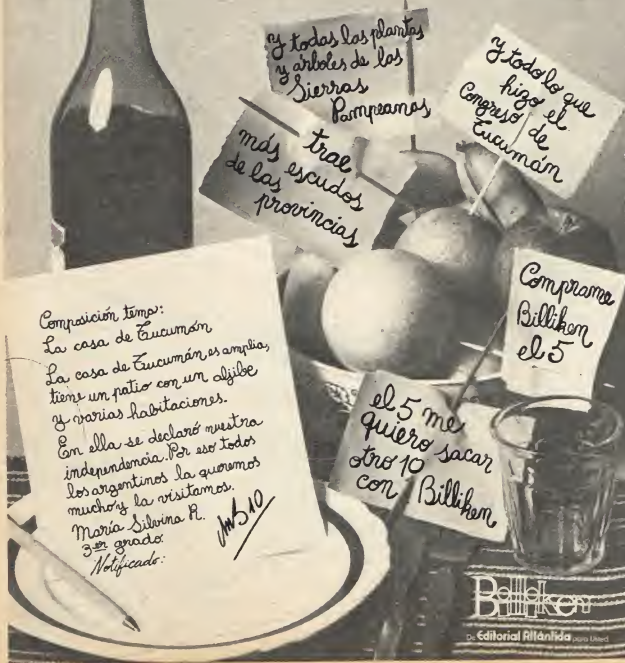 y todas las plantas
y árboles de las
Sierras
Pampeanas
y todo lo que
hizo el
Congreso de
Tucumán
trae
más escudos
de las
provincias
Comprame
Billiken
el 5
el 5 me
quiero sacar
otro 10
con Billiken
Composición tema:
La casa de Tucumán
La casa de Tucumán es amplia,
tiene un patio con un aljibe
y varias habitaciones.
En ella se declaró nuestra
independencia. Por eso todos
los argentinos la queremos
mucho y la visitamos.
María Silvina R.
3er grado.
10
Notificado:
Billiken
De Editorial Atlántida para Usted